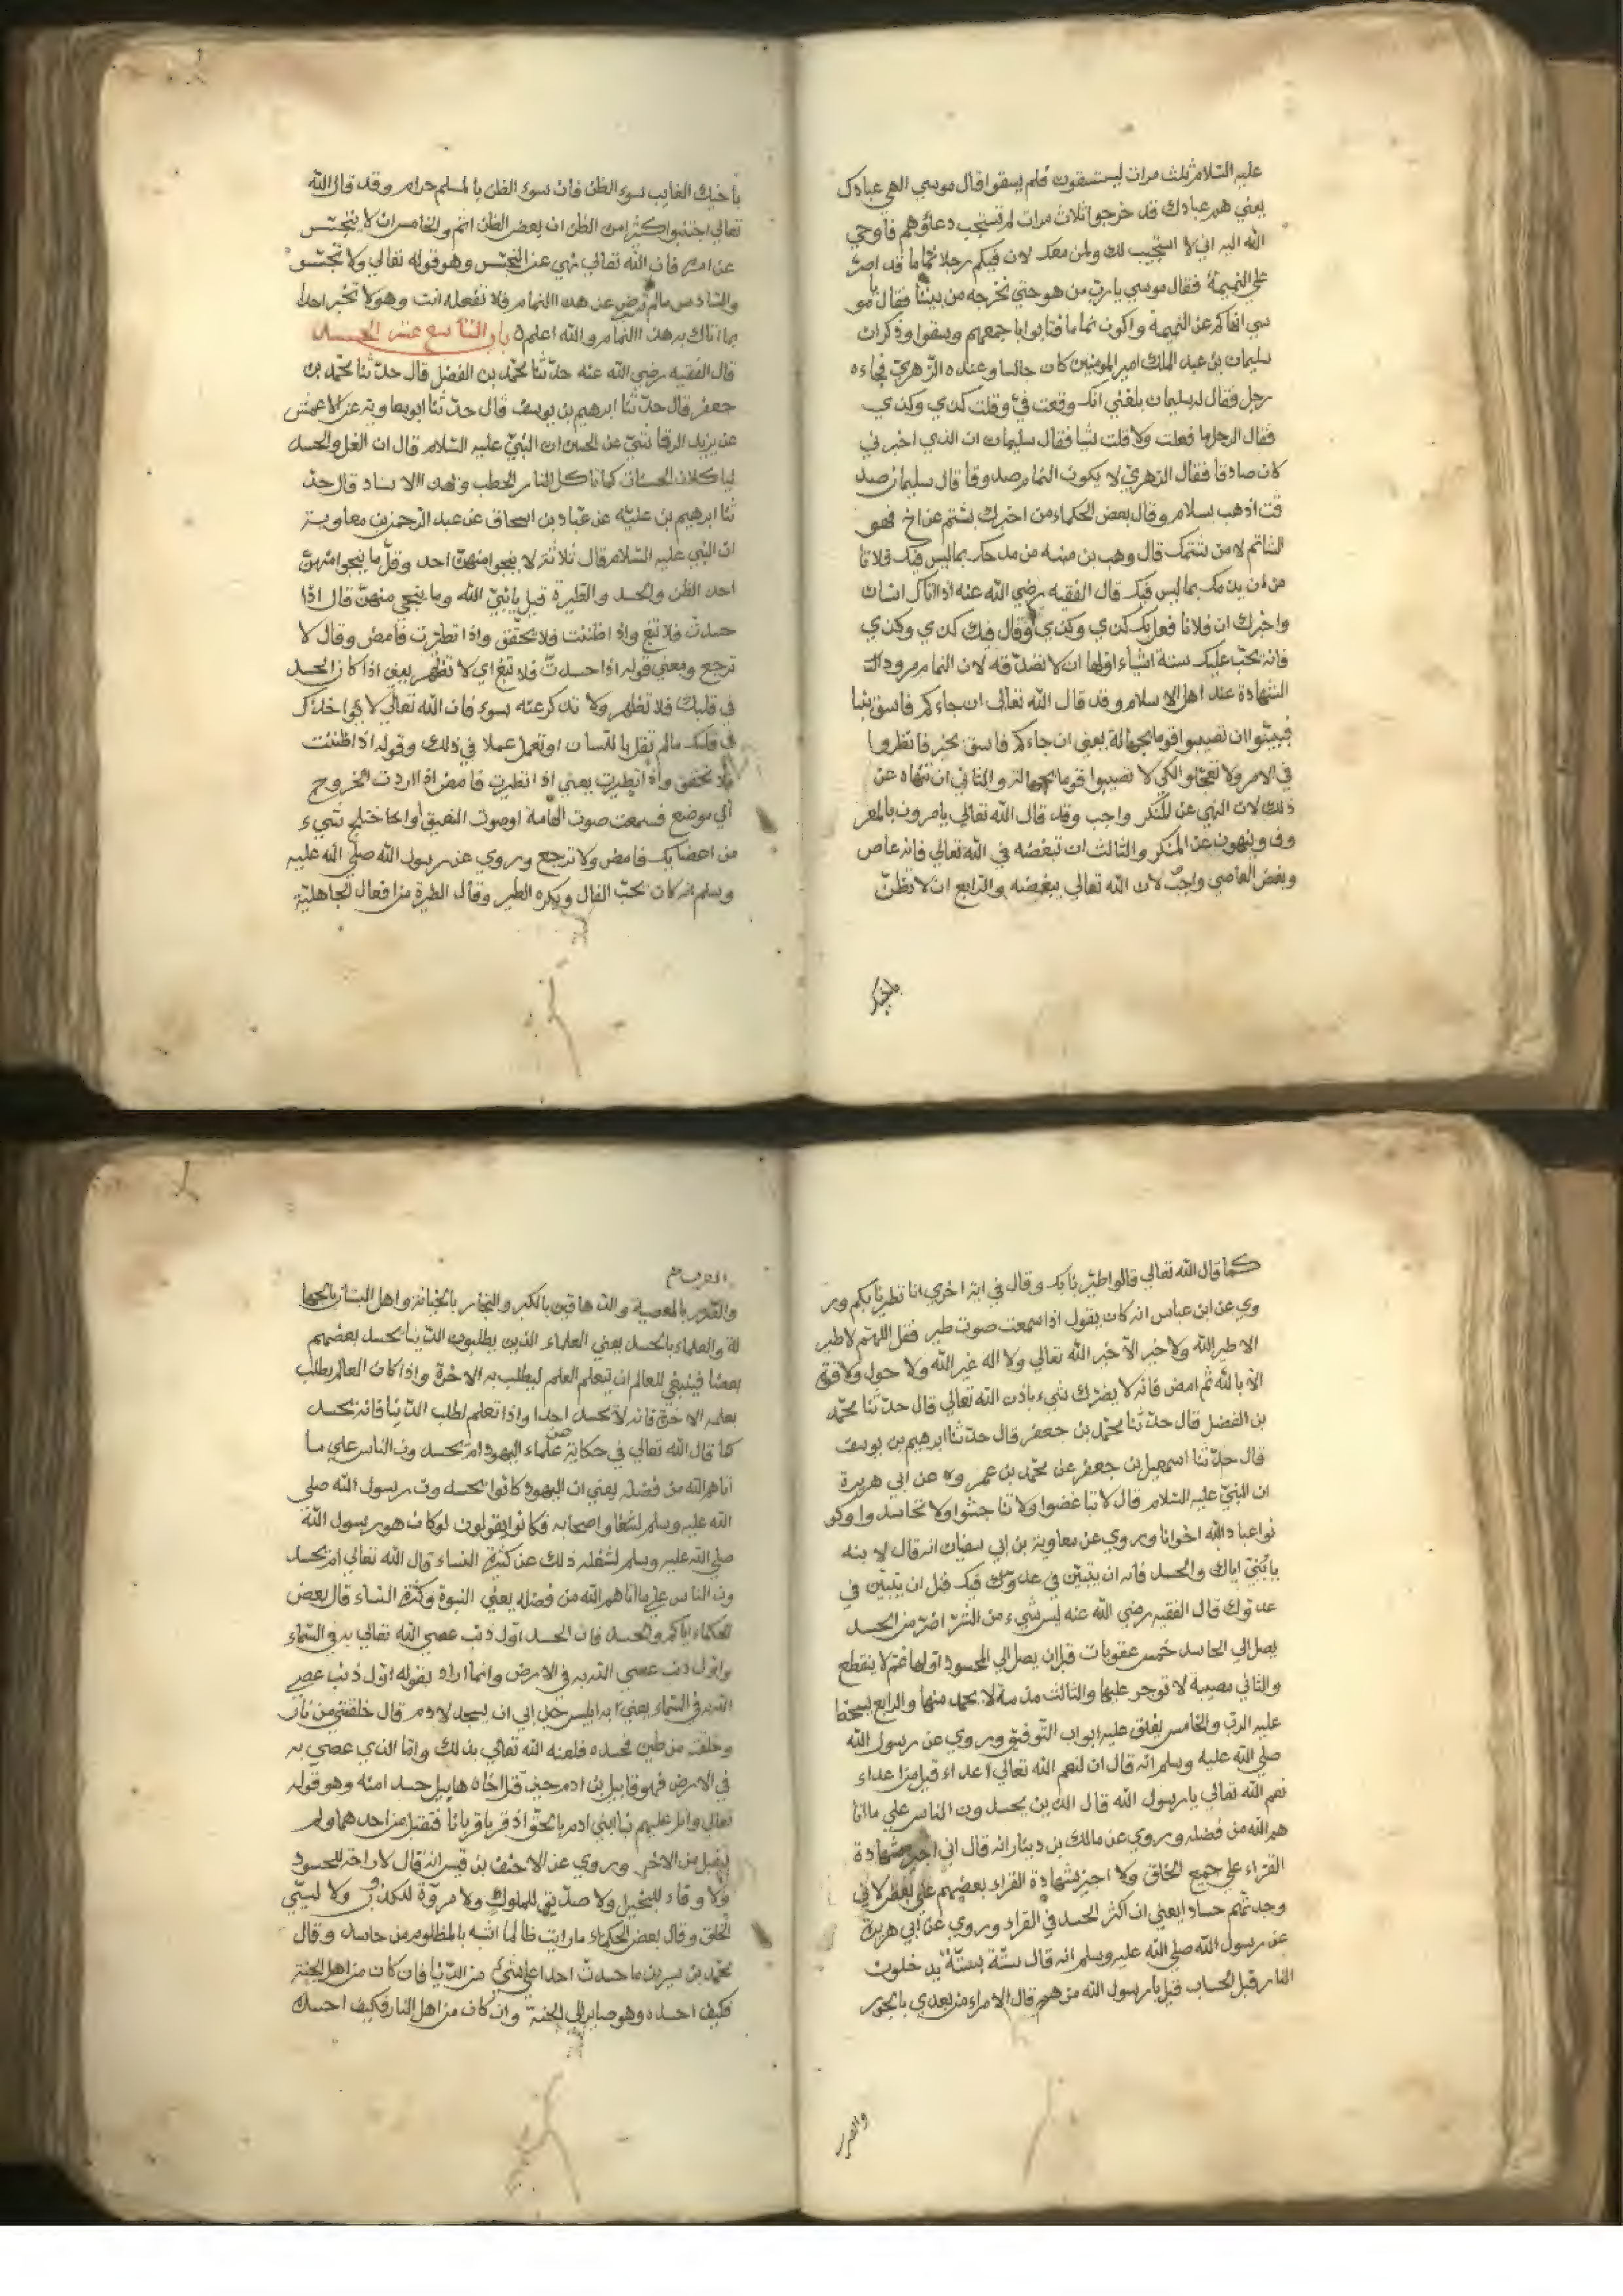 عليه السلام ثلث مرات ليستسقون فلم يسقوا قال موسي الهي عبادك
يعني هم عبادك قد خرجوا ثلاث مرات لم تستجب دعاؤهم فاوحي
الله اليه اني لا استجيب لك ولمن معك لان فيكم رجلا نماما قد اصر
علي النميمة فقال موسي يا رب من هو حتي نخرجه من بيننا فقال يا مو
سي انهاكم عن النميمة واكون نماما فتابوا باجمعهم وسقوا وذكر ان
سليمان بن عبد الملك امير المومنين كان جالسا وعنده الزهري فجاءه
رجل فقال له سليمان بلغني انك وقعت في وقلت كذي وكذي
فقال الرجل ما فعلت ولا قلت شيا فقال سليمان ان الذي اخبرني
كان صادقا فقال الزهري لا يكون النمام صدوقا قال سليمان صد
قت اذهب بسلام وقال بعض الحكماء من اخبرك بشتم عن اخ فهو
الشاتم لا من شتمك قال وهب بن منبه من مدحك بما ليس فيك فلا تا
من ان يذمك بما ليس فيك قال الفقيه رضي الله عنه اذا اتاك انسان
واخبرك ان فلانا فعل بك كذي وكذي وقال فيك كذي وكذي
فانه يجب عليك ستة اشياء اولها ان لا تصدقه لان النمام مردود
الشهادة عند اهل الاسلام وقد قال الله تعالي ان جاءكم فاسق بنبا
فتبينوا ان تصيبوا قوما بجهالة يعني ان جاءكم فاسق بخبر فانظروا
في الامر ولا تعجلوا لكي لا تصيبوا قوما بجهالة والثاني ان تنهاه عن
ذلك لان النهي عن المنكر واجب وقد قال الله تعالي يامرون بالمعر
وف وينهون عن المنكر والثالث ان تبغضه في الله تعالي فانه عاص
وبغض العاصي واجب لان الله تعالي يبغضه والرابع ان لا تظن
باخيك
باخيك الغايب سوء الظن فان سوء الظن بالمسلم حرام وقد قال الله
تعالي اجتنبوا كثيرا من الظن ان بعض الظن اثم والخامس ان لا تجسس
عن امره فان الله تعالي نهي عن التجسس وهو قوله تعالي ولا تجسسو
والسادس ما لم ترض عن هذا النمام فلا تفعله انت وهو لا تخبر احدا
بما اتاك به هذا النمام والله اعلم باب التاسع عشر الحسد
قال الفقيه رضي الله عنه حدثنا محمد بن الفضل قال حدثنا محمد بن
جعفر قال حدثنا ابرهيم بن يوسف قال حدثنا ابو معاوية عن الاعمش
عن يزيد الرقاشي عن الحسن ان النبي عليه السلام قال ان الغل والحسد
لياكلان الحسنات كما تاكل النار الحطب وبهذا الاسناد قال حد
ثنا ابرهيم بن علية عن عباد بن اسحاق عن عبد الرحمن بن معاوية
ان النبي عليه السلام قال ثلاثة لا ينجوا منهن احد وقل ما ينجوا منهن
احد الظن والحسد والطيرة قيل يا نبي الله وما ينجي منهن قال اذا
حسدت فلا تبغ واذا ظننت فلا تحقق واذا تطيرت فامض وقال لا
ترجع ومعني قوله اذا حسدت فلا تبغ اي لا تظهر يعني اذا كان الحسد
في قلبك فلا تظهر ولا تذكر عنه بسوء فان الله تعالي لا يواخذك
في قلبك ما لم تقل باللسان او تعمل عملا في ذلك وقوله اذا ظننت
فلا تحقق واذا تطيرت يعني اذا تطيرت فامض اذا اردت الخروج
الي موضع فسمعت صوت الهامة او صوت النعيق او اختلج شيء
من اعضايك فامض ولا ترجع وروي عن رسول الله صلي الله عليه
وسلم انه كان يحب الفال ويكره الطير وقال الطيرة من افعال الجاهلية
كما قال الله تعالي قالوا اطيرنا بك وقال في اية اخري انا تطيرنا بكم ور
وي عن ابن عباس انه كان يقول اذا سمعت صوت طير فقل اللهم لا طير
الا طير الله ولا خير الا خير الله تعالي ولا اله غير الله ولا حول ولا قوة
الا بالله ثم امض فانه لا يضرك شيء باذن الله تعالي قال حدثنا محمد
بن الفضل قال حدثنا محمد بن جعفر قال حدثنا ابرهيم بن يوسف
قال حدثنا اسمعيل بن جعفر عن محمد بن عمرو عن ابي هريرة
ان النبي عليه السلام قال لا تباغضوا ولا تناجشوا ولا تحاسدوا وكو
نوا عباد الله اخوانا وروي عن معاوية بن ابي سفيان انه قال لابنه
يا بني اياك والحسد فانه ان يتبين في عدوك فيك قبل ان يتبين في
عدوك قال الفقيه رضي الله عنه ليس شيء من الشر اضر من الحسد
يصل الي الحاسد خمس عقوبات قبل ان يصل الي المحسود اولها غم لا ينقطع
والثاني مصيبة لا توجر عليها والثالث مذمة لا يحمد منها والرابع يسخط
عليه الرب والخامس يغلق عليه ابواب التوفيق وروي عن رسول الله
صلي الله عليه وسلم انه قال ان لنعم الله تعالي اعداء قيل من اعداء
نعم الله تعالي يا رسول الله قال الذين يحسدون الناس علي ما اتا
هم الله من فضله وروي عن مالك بن دينار انه قال اني اجيز شهادة
القراء علي جميع الخلق ولا اجيز شهادة القراء بعضهم علي بعض لاني
وجدتهم حسادا يعني ان اكثر الحسد في القراء وروي عن ابي هريرة
عن رسول الله صلي الله عليه وسلم انه قال ستة بستة يدخلون
النار قبل الحساب قيل يا رسول الله من هم قال الامراء من بعدي بالجور
والعرب
والعرب بالمعصية والدهاقين بالكبر والتجار بالخيانة واهل البساتين بالجها
لة والعلماء بالحسد يعني العلماء الذين يطلبون الدنيا يحسد بعضهم
بعضا فينبغي للعالم ان يتعلم العلم ليطلب به الاخرة واذا كان العالم يطلب
بعلمه الاخرة فانه لا يحسد احدا واذا تعلم لطلب الدنيا فانه يحسد
كما قال الله تعالي في حكاية عن علماء اليهود ام يحسدون الناس علي ما
اتاهم الله من فضله يعني ان اليهود كانوا يحسدون رسول الله صلي
الله عليه وسلم واصحابه فكانوا يقولون لو كان هو رسول الله
صلي الله عليه وسلم لشغله ذلك عن كثرة النساء قال الله تعالي ام يحسد
ون الناس علي ما اتاهم الله من فضله يعني النبوة وكثرة النساء قال بعض
الحكماء اياكم والحسد فان الحسد اول ذنب عصي الله تعالي به في السماء
واول ذنب عصي الله به في الارض وانما اراد بقوله اول ذنب عصي
الله في السماء يعني به ابليس حين ابي ان يسجد لادم قال خلقتني من نار
وخلقته من طين فحسده فلعنه الله تعالي بذلك واما الذي عصي به
في الارض فهو قابيل بن ادم حين قتل اخاه هابيل حسدا منه وهو قوله
تعالي واتل عليهم نبا ابني ادم بالحق اذ قربا قربانا فتقبل من احدهما ولم
يتقبل من الاخر وروي عن الاحنف بن قيس انه قال لا راحة للحسود
ولا وفاء للبخيل ولا صديق للملوك ولا مروة للكذوب ولا لسيي
الخلق وقال بعض الحكماء ما رايت ظالما اشبه بالمظلوم من حاسد وقال
محمد بن سيرين ما حسدت احدا علي شيء من الدنيا فان كان من اهل الجنة
فكيف احسده وهو صاير الي الجنة وان كان من اهل النار فكيف احسد